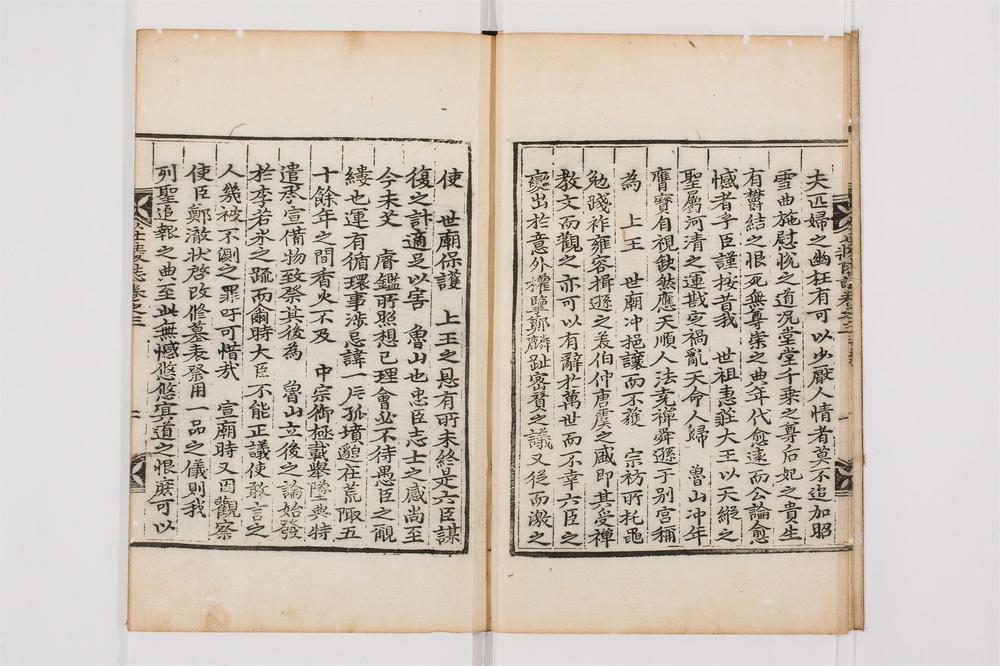 夫匹婦之幽枉有可以少厭人情者莫不追加昭
雪曲施慰悅之道况堂堂千乘之尊后妃之貴生
有鬱結之恨死無尊崇之典年代愈遠而公論愈
憾者乎臣謹按昔我 世祖惠莊大王以天縱之
聖屬河清之運戡定禍亂天命人歸 魯山冲年
膺寶自視飮然應天順人法堯禪舜遜于別宮稱
為 上王 世廟冲挹讓而不獲 宗祊所托黽
勉踐祚雍容揖遜之美伯仲唐虞之盛即其受禪
敎文而觀之亦可以有辭於萬世而不幸六臣之
變出於意外權擥鄭麟趾密贊之議又從而激之
使 世廟保護 上王之恩有所未終是六臣謀
復之計適足以害 魯山也忠臣志士之感尚至
今未爻 睿鑑所照想已理會必不待愚臣之覼
縷也運有循環事涉忌諱一片孤墳邈在荒陬五
十餘年之間香火不及 中宗御極載擧隆典特
遣承宣備物致祭其後為 魯山立後之論始發
於李若氷之疏而當時大臣不能正議使敢言之
人幾被不測之罪吁可惜哉 宣廟時又因觀察
使臣鄭澈状啓改修墓表祭用一品之儀則我
列聖追報之典至此無憾悠悠冥道之恨庶可以
莊陵誌卷之三